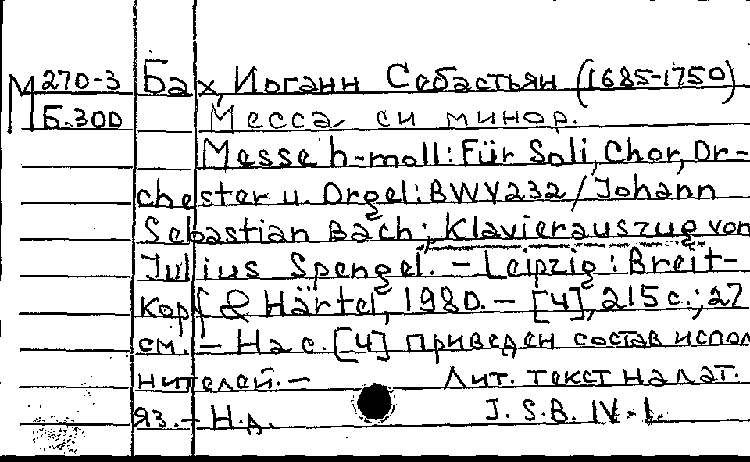 М 270-3 Бах, Иоганн Себастьян (1685-1750)
Б.300 Месса си минор.
Messe h-moll: Für Soli, Chor, Or-
chester u. Orgel: BWV232 / Johann
Sebastian Bach; Klavierauszug von
Julius Spengel. - Leipzig: Breit-
kopf & Härtel, 1980. - [4], 215 с.; 27
см. - На с. [4] приведен состав испол
нителей. - Лит. текст на лат.
яз. - Н.д. J. S. B. IV-1.